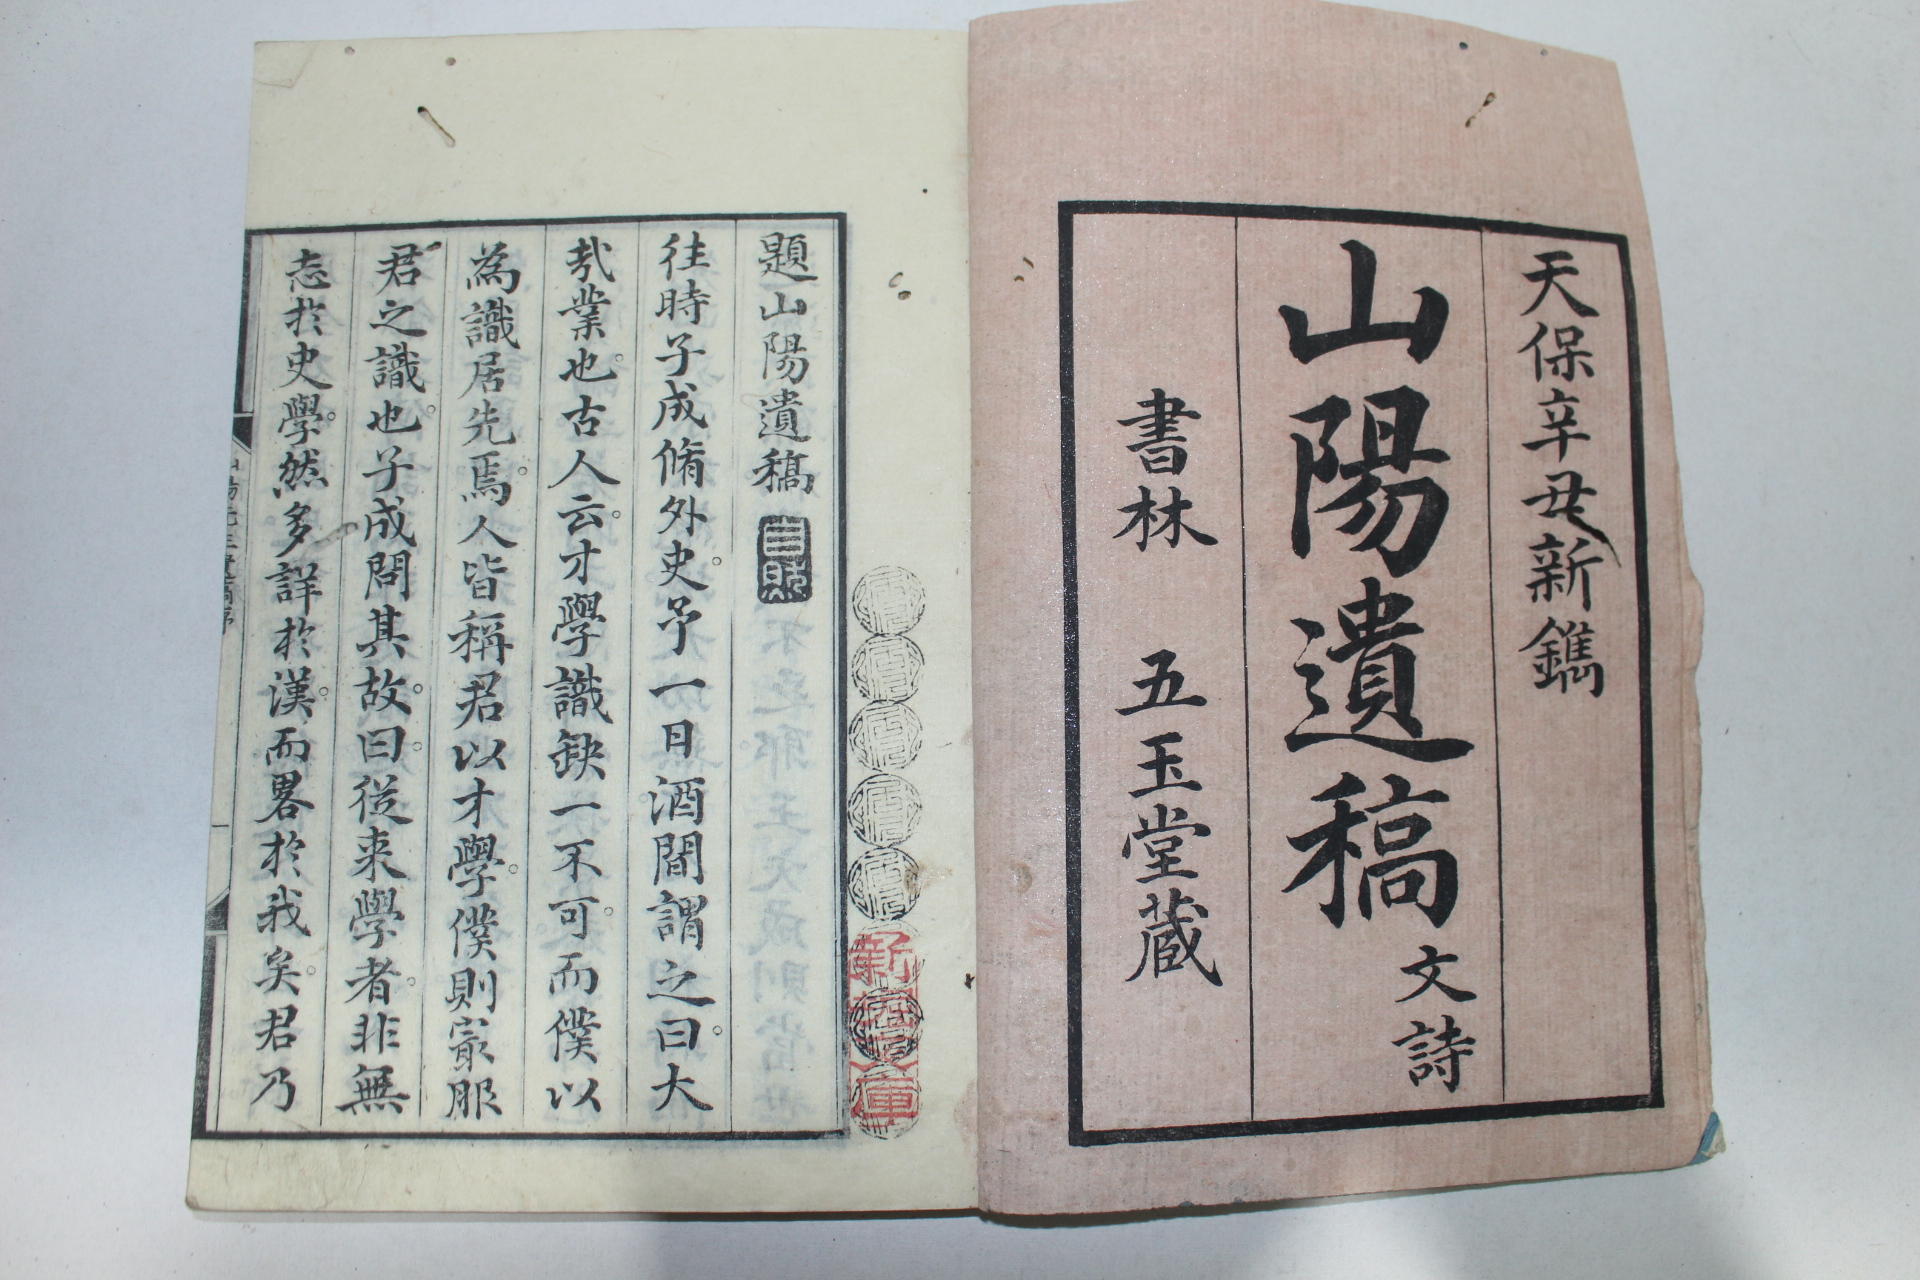 天保辛丑新鐫
山陽遺稿 文詩
書林 五玉堂蔵
題山陽遺稿
往時子成脩外史。予一日酒間謂之曰。大
哉業也。古人云。才學識缺一不可。而僕以
為識居先焉。人皆稱君以才學。僕則㝡服
君之識也。子成問其故。曰。從来學者。非無
志於史學。然多詳於漢。而畧於我矣。君乃
新
庫